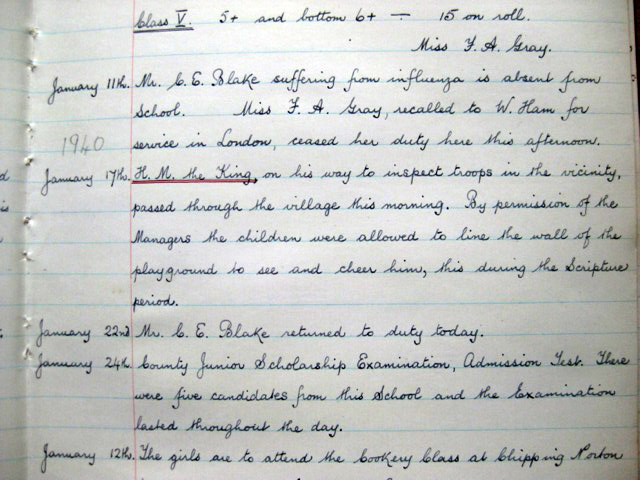 Class V. 5+ and bottom 6+ — 15 on roll.
Miss F. A. Gray.
January 11th. Mr. C. E. Blake suffering from influenza is absent from
School. Miss F. A. Gray, recalled to W. Ham for
1940 service in London, ceased her duty here this afternoon.
January 17th. H. M. the King, on his way to inspect troops in the vicinity,
passed through the village this morning. By permission of the
Managers the children were allowed to line the wall of the
playground to see and cheer him, this during the Scripture
period.
January 22nd Mr. C. E. Blake returned to duty today.
January 24th. County Junior Scholarship Examination, Admission Test. There
were five candidates from this School and the Examination
lasted throughout the day.
January 12th. The girls are to attend the Cookery Class at Chipping Norton